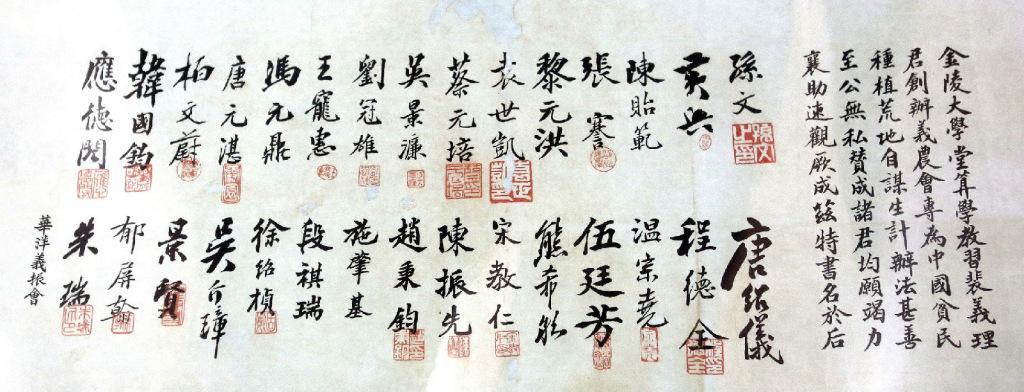 金陵大學堂筭學教習裴義理
君創辦義農會專為中國貧民
種植荒地自謀生計辦法甚善
至公無私贊成諸君均願竭力
襄助速觀厥成茲特書名於后
孫文
唐紹儀
黃興
程德全
陳貽範
溫宗堯
張謇
伍廷芳
黎元洪
熊希齡
袁世凱
宋教仁
蔡元培
陳振先
吳景濂
趙秉鈞
劉冠雄
施肇基
王寵惠
段祺瑞
馮元鼎
徐紹楨
唐元湛
吳介璋
柏文蔚
景賢
韓國鈞
郁屏翰
應德閎
朱瑞
華洋義振會